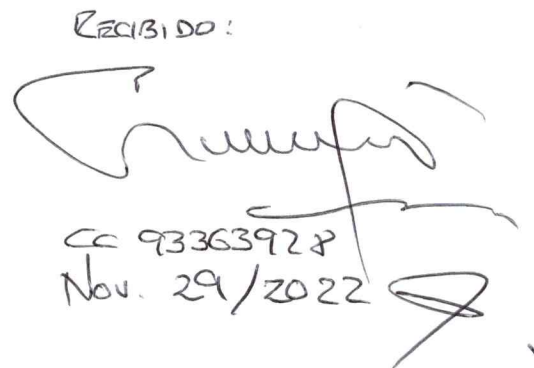 RECIBIDO:
CC 93363928
Nov. 29/2022